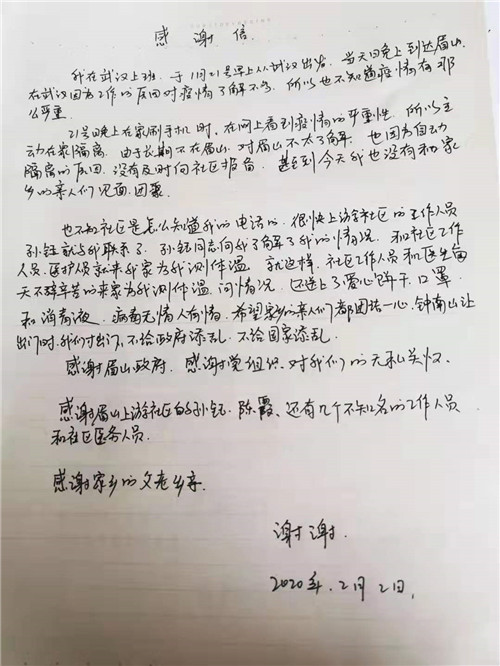 感谢信.
我在武汉上班、于1月21号早上从武汉出发、当天回晚上到达眉山.
在武汉因为工作的原因对疫情了解不多、所以也不知道疫情有那
么严重.
21号晚上在家刷手机时、在网上看到疫情的严重性、所以主
动在家隔离、由于长期不在眉山、对眉山不太了解、也因为自动
隔离的原因、没有及时向社区报备、甚至到今天我也没有和家
乡的亲人们见面、团聚、
也不知社区是怎么知道我的电话的、很快上游社区的工作人员
孙钰就与我联系了、孙钰同志向我了解了我的情况、和社区工作
人员、医护人员就来我家为我测体温、就这样、社区工作人员和医生每
天不辞辛苦的来家为我测体温、问情况、还送上了爱心饼干、口罩
和消毒液、病毒无情人有情、希望家乡的亲人们都团结一心、钟南山让
出门时、我们才出门、不给政府添乱、不给国家添乱.
感谢眉山政府、感谢党组织、对我们的无私关怀、
感谢眉山上游社区的孙钰、陈霞、还有几个不知名的工作人员
和社区医务人员.
感谢家乡的父老乡亲.
谢谢.
2020年、2月2日.